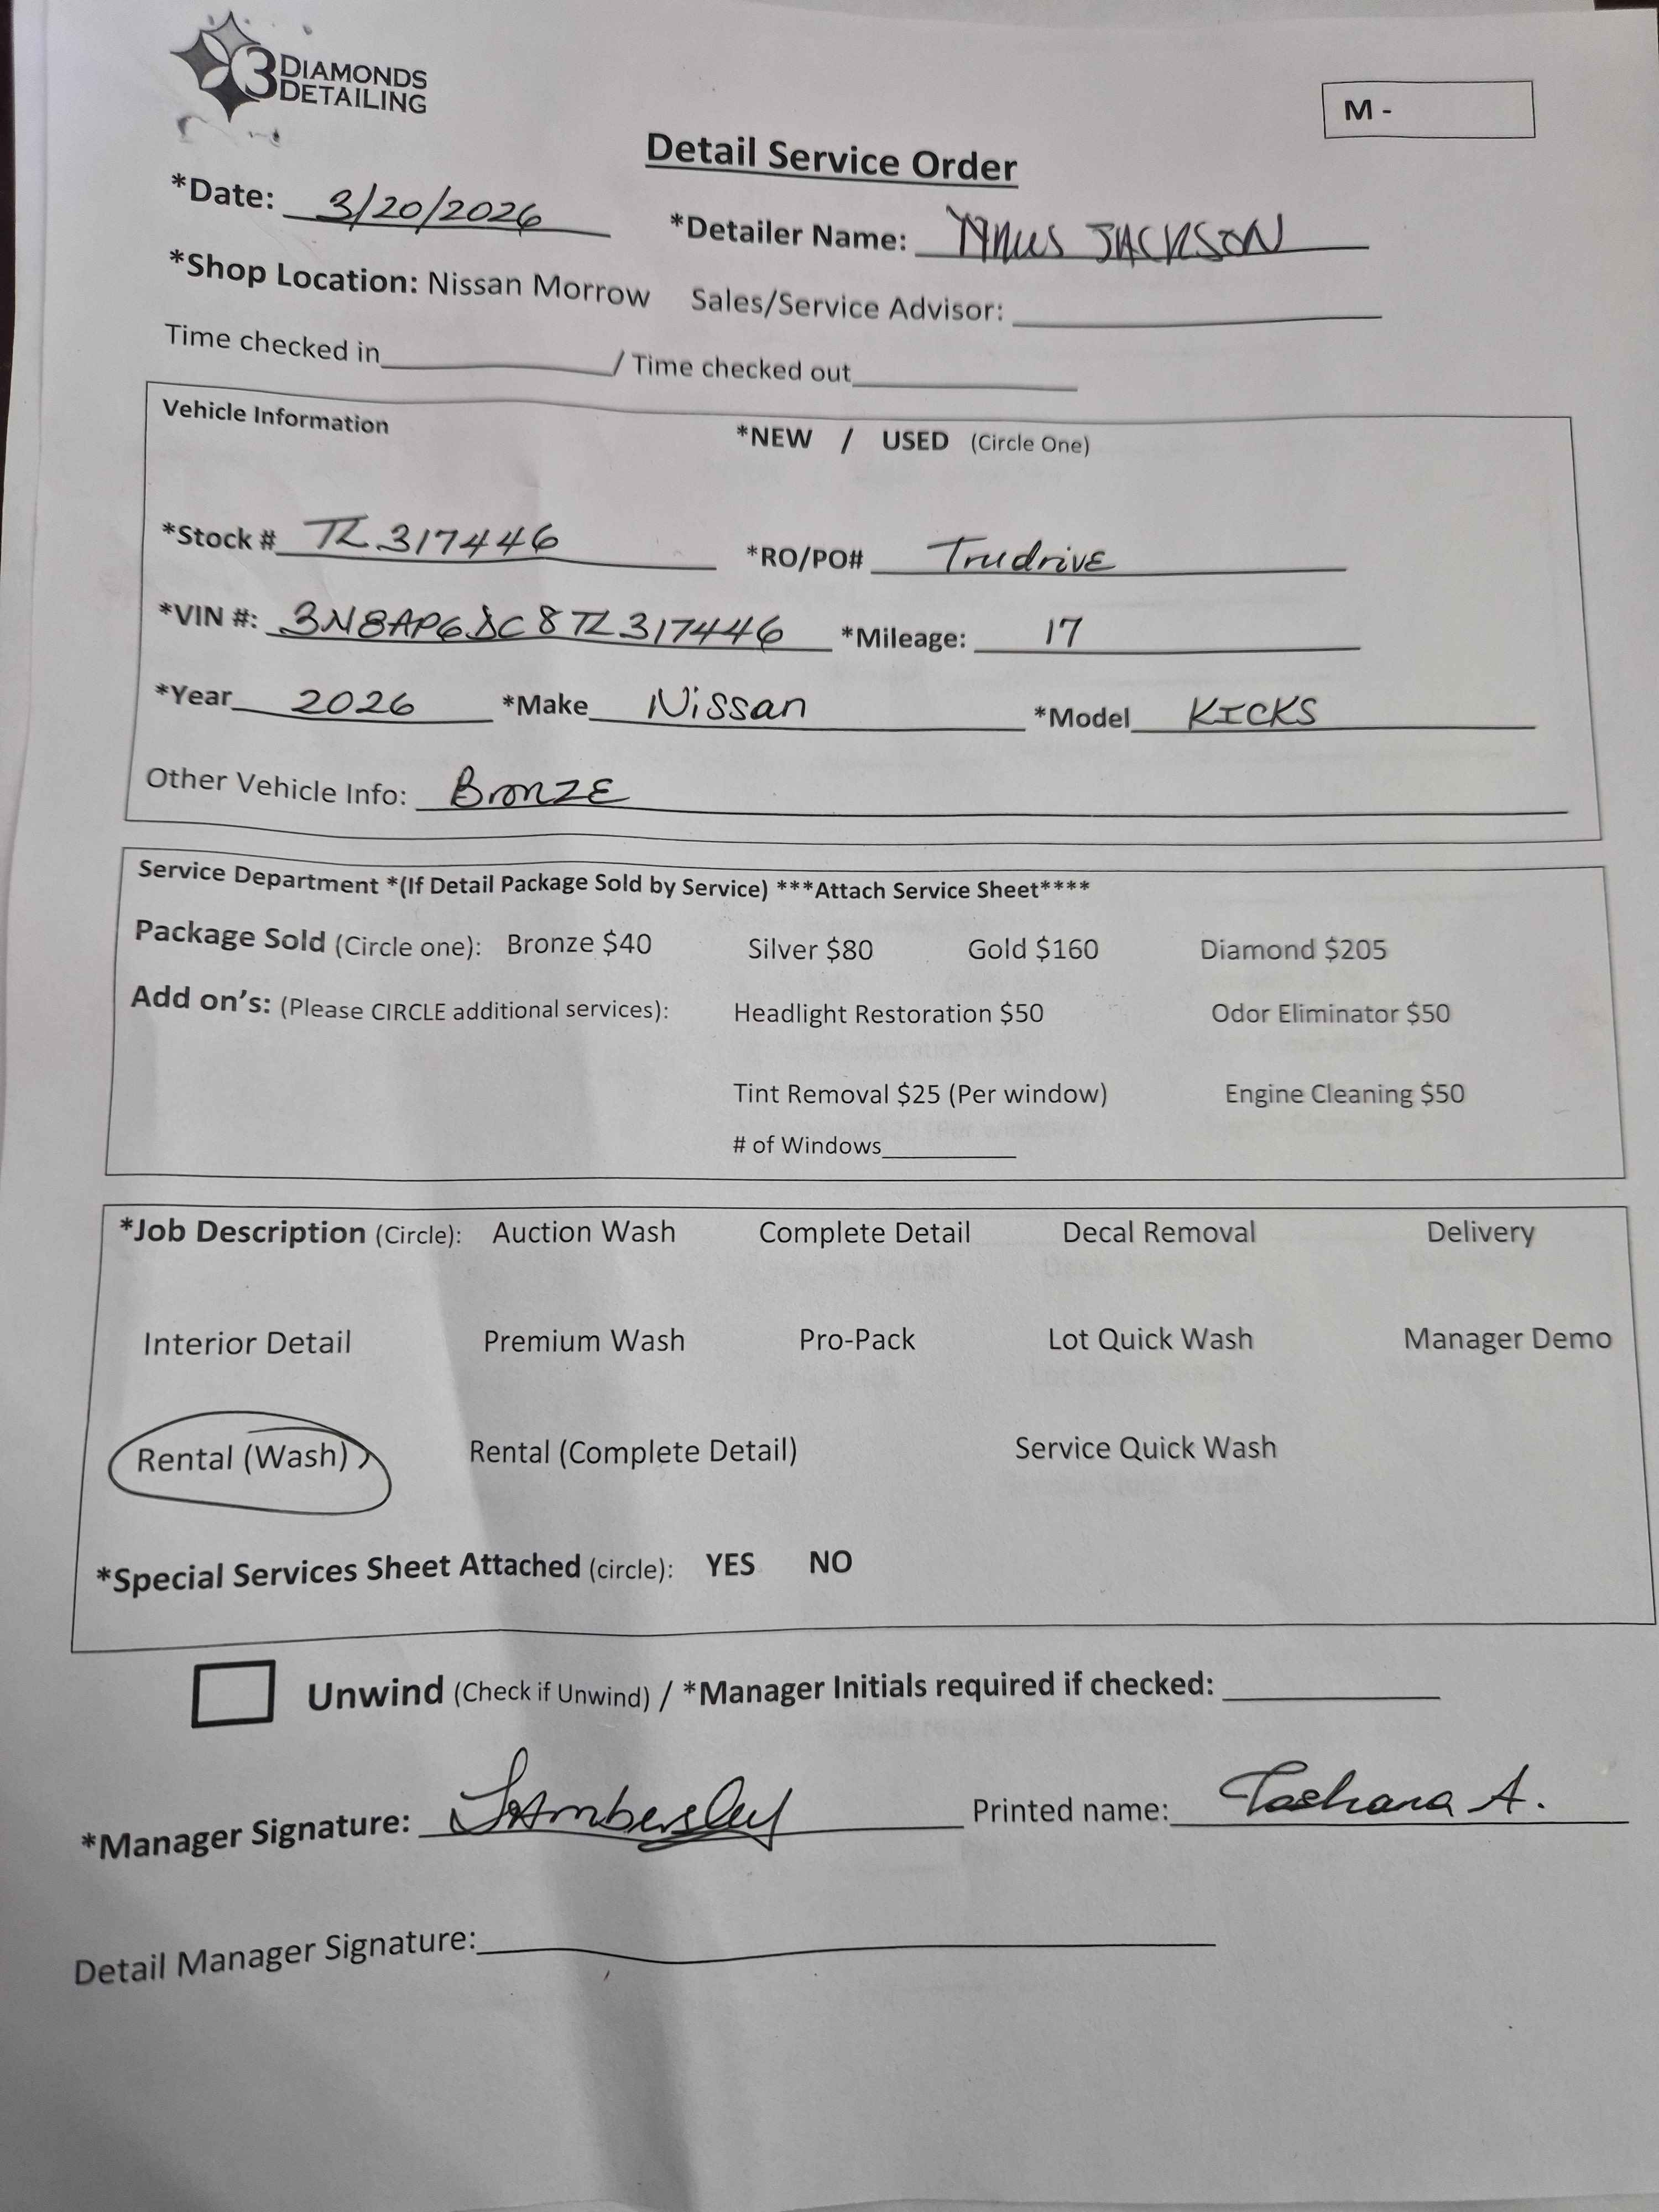 3 DIAMONDS
DETAILING
M -
Detail Service Order
*Date: 3/20/2026 *Detailer Name: JACKSON
*Shop Location: Nissan Morrow Sales/Service Advisor:
Time checked in / Time checked out
Vehicle Information
*NEW / USED (Circle One)
*Stock # TL317446 *RO/PO# Trudrive
*VIN #: 3N8AP6DC8TL317446 *Mileage: 17
*Year 2026 *Make Nissan *Model KICKS
Other Vehicle Info: Bronze
Service Department *(If Detail Package Sold by Service) ***Attach Service Sheet****
Package Sold (Circle one): Bronze $40 Silver $80 Gold $160 Diamond $205
Add on's: (Please CIRCLE additional services): Headlight Restoration $50 Odor Eliminator $50
Tint Removal $25 (Per window) Engine Cleaning $50
# of Windows
*Job Description (Circle): Auction Wash Complete Detail Decal Removal Delivery
Interior Detail Premium Wash Pro-Pack Lot Quick Wash Manager Demo
Rental (Wash) Rental (Complete Detail) Service Quick Wash
*Special Services Sheet Attached (circle): YES NO
Unwind (Check if Unwind) / *Manager Initials required if checked:
*Manager Signature: Printed name: Tashana A.
Detail Manager Signature: